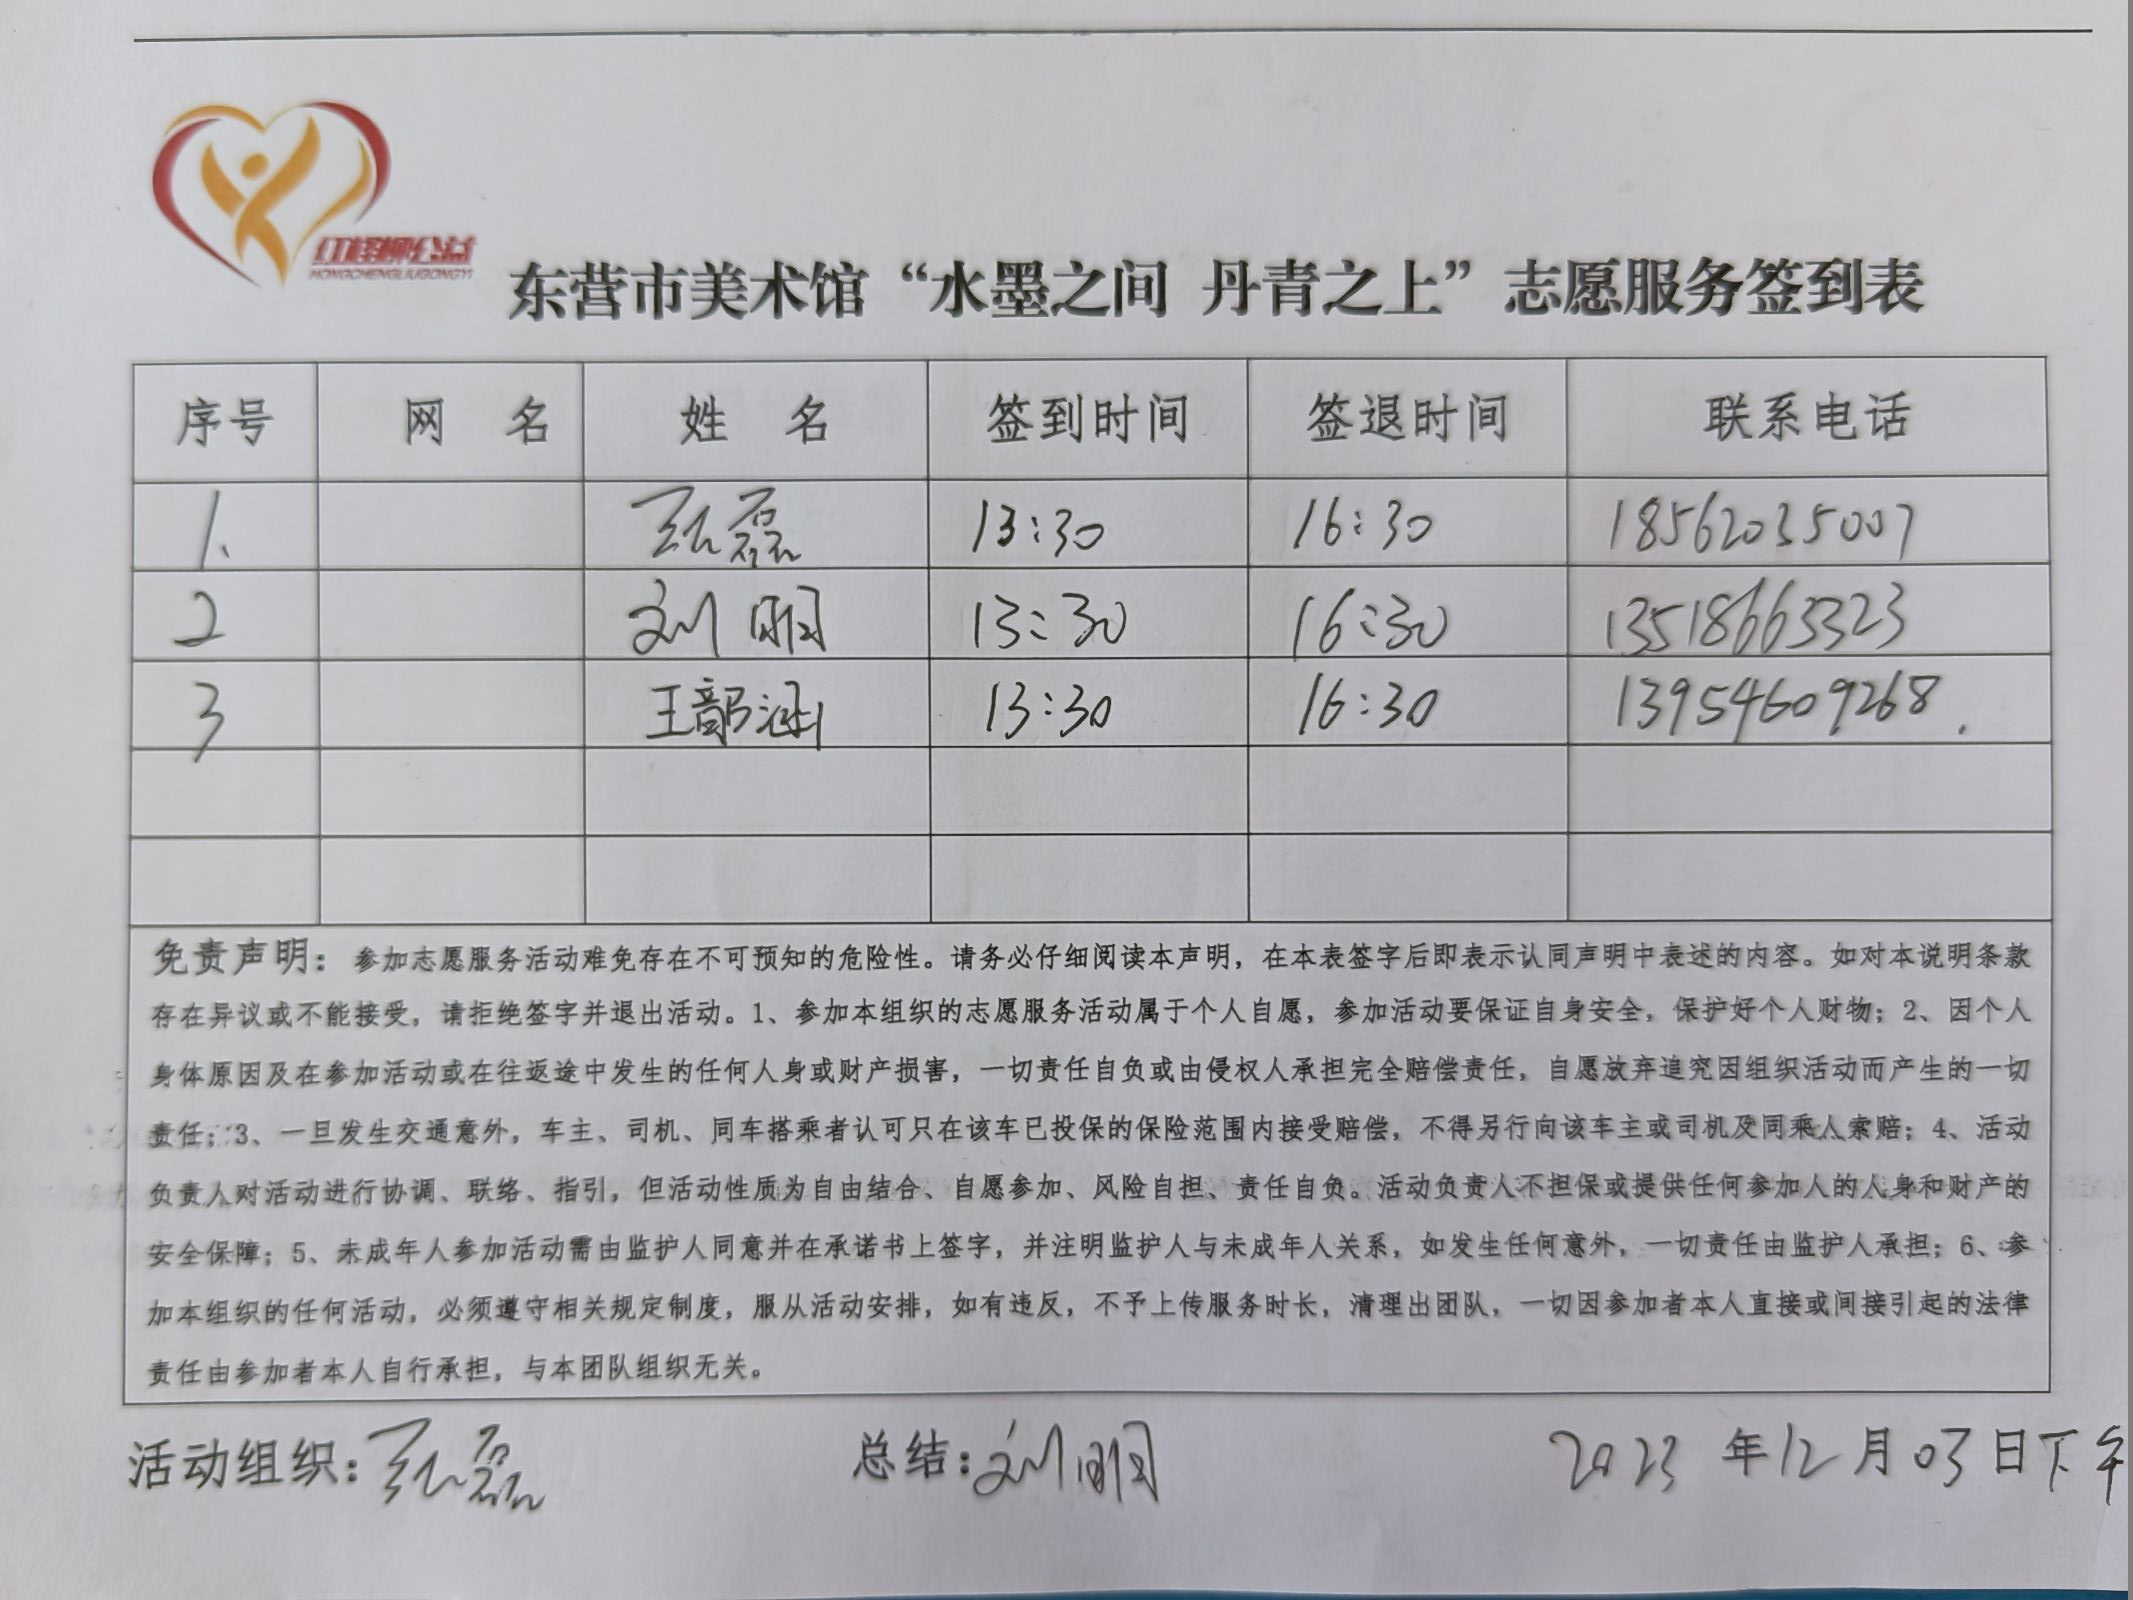 红柽柳公益
HONGCHENGLIUGONGYI
东营市美术馆“水墨之间 丹青之上”志愿服务签到表
序号 网 名 姓 名 签到时间 签退时间 联系电话
1、 张磊 13:30 16:30 18562035007
2 刘明 13:30 16:30 13518665323
3 王韶涵 13:30 16:30 13954609268.
免责声明：参加志愿服务活动难免存在不可预知的危险性。请务必仔细阅读本声明，在本表签字后即表示认同声明中表述的内容。如对本说明条款
存在异议或不能接受，请拒绝签字并退出活动。1、参加本组织的志愿服务活动属于个人自愿，参加活动要保证自身安全，保护好个人财物；2、因个人
身体原因及在参加活动或在往返途中发生的任何人身或财产损害，一切责任自负或由侵权人承担完全赔偿责任，自愿放弃追究因组织活动而产生的一切
责任；3、一旦发生交通意外，车主、司机、同车搭乘者认可只在该车已投保的保险范围内接受赔偿，不得另行向该车主或司机及同乘人索赔；4、活动
负责人对活动进行协调、联络、指引，但活动性质为自由结合、自愿参加、风险自担、责任自负。活动负责人不担保或提供任何参加人的人身和财产的
安全保障；5、未成年人参加活动需由监护人同意并在承诺书上签字，并注明监护人与未成年人关系，如发生任何意外，一切责任由监护人承担；6、参
加本组织的任何活动，必须遵守相关规定制度，服从活动安排，如有违反，不予上传服务时长，清理出团队，一切因参加者本人直接或间接引起的法律
责任由参加者本人自行承担，与本团队组织无关。
活动组织：张磊 总结：刘明 2023 年12月03日下午